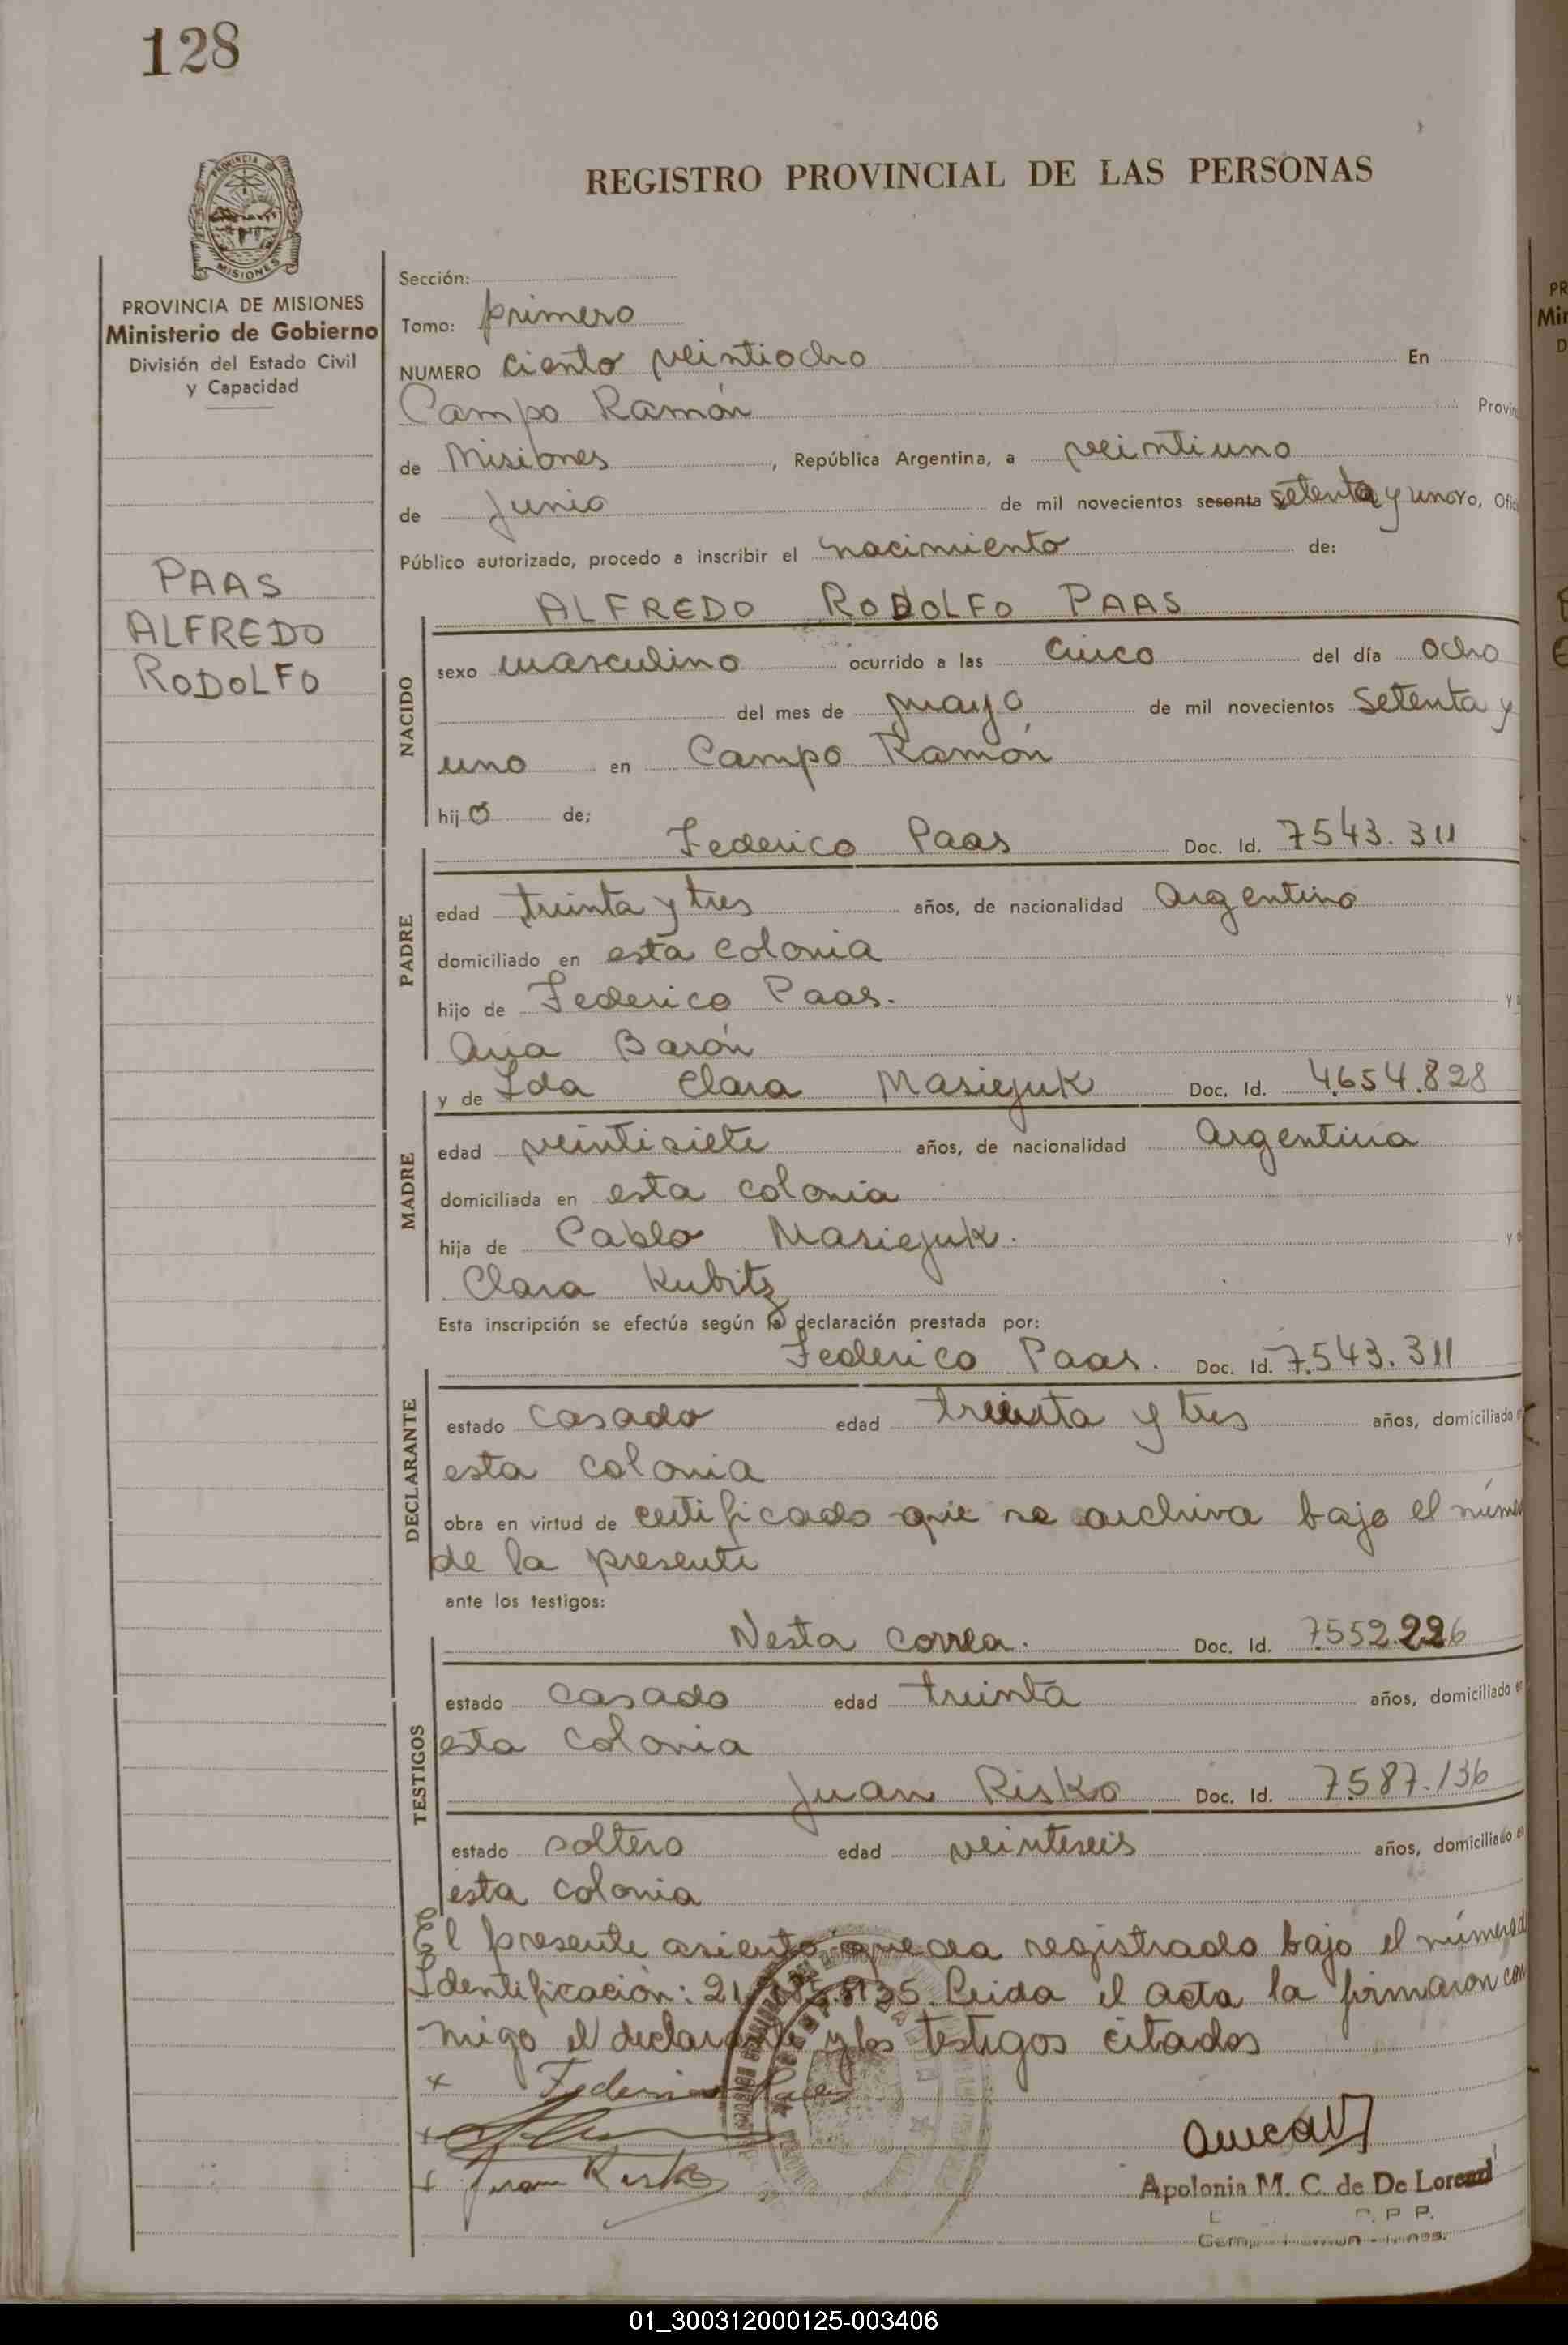 128
PROVINCIA DE MISIONES
Ministerio de Gobierno
División del Estado Civil
y Capacidad
PAAS
ALFREDO
RODOLFO
REGISTRO PROVINCIAL DE LAS PERSONAS
Sección:
Tomo: primero
NUMERO ciento veintiocho En
Campo Ramón
de Misiones, República Argentina, a veintiuno
de Junio de mil novecientos sesenta setenta y uno Yo,
Público autorizado, procedo a inscribir el nacimiento de:
ALFREDO RODOLFO PAAS
NACIDO
sexo masculino ocurrido a las cinco del día ocho
del mes de mayo de mil novecientos setenta y
uno en Campo Ramón
hijo de;
Federico Paas Doc. Id. 7543.311
PADRE
edad treinta y tres años, de nacionalidad Argentino
domiciliado en esta colonia
hijo de Federico Paas.
Ana Barón
y de Ida Clara Masiejuk Doc. Id. 4.654.828
MADRE
edad veintisiete años, de nacionalidad Argentina
domiciliada en esta colonia
hija de Pablo Masiejuk.
Clara Kubitz
Esta inscripción se efectúa según la declaración prestada por:
Federico Paas. Doc. Id. 7.543.311
DECLARANTE
estado casado edad treinta y tres años, domiciliado
esta colonia
obra en virtud de certificado que se archiva bajo el
de la presente
ante los testigos:
Nesta Correa. Doc. Id. 7552.226
TESTIGOS
estado casado edad treinta años, domiciliado
esta colonia
Juan Risko Doc. Id. 7.587.136
estado soltero edad veinteseis años, domiciliado
esta colonia
El presente asiento queda registrado bajo el
Identificación: Leida el acta la firmaron con
migo el declarante y los testigos citados
x Federico
x
x Juan Risko
Apolonia M. C. de De
01_300312000125-003406